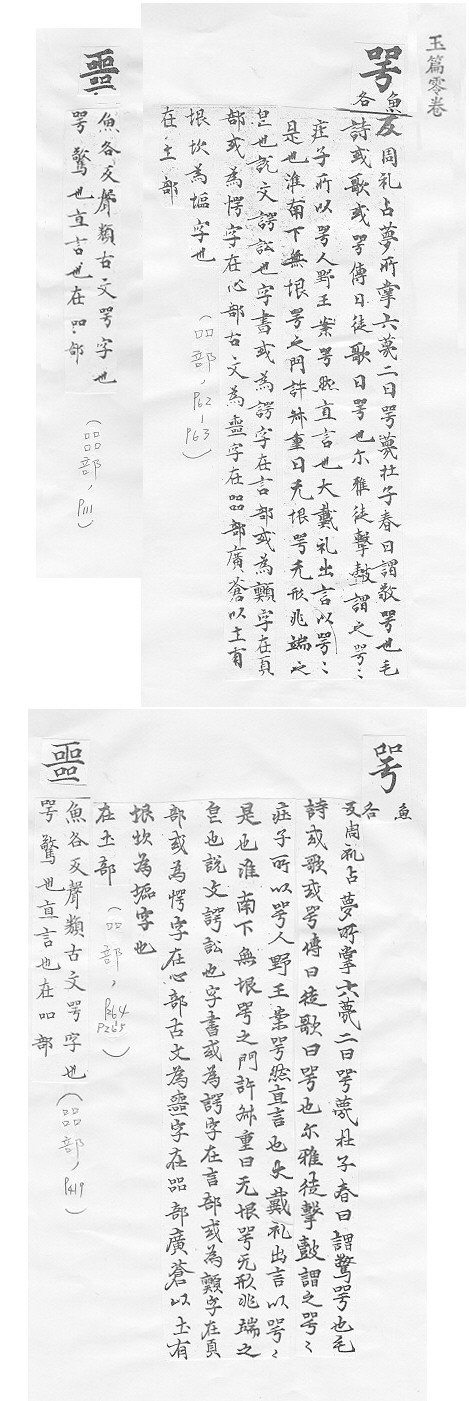 玉篇零卷
咢
魚各反周礼占夢所掌六夢二曰咢夢杜子春曰謂敬咢也毛
詩或歌或咢傳曰徒歌曰咢也尓雅徒擊鼓謂之咢〻
庄子所以咢人野王案咢然直言也大戴礼出言以咢〻
是也淮南下無垠咢之門許叔重曰无垠咢无形兆端之
皃也說文謣訟也字書或為諤字在言部或為顎字在頁
部或為愕字在心部古文為噩字在㗊部廣蒼以土有
垠坎為堮字也
在土部
(㗊部,P62-P63)
噩
魚各反聲類古文咢字也
咢驚也直言也在吅部
(㗊部,P111)
咢
魚各
反周礼占夢所掌六夢二曰咢夢杜子春曰謂驚咢也毛
詩或歌或咢傳曰徒歌曰咢也尓雅徒擊鼓謂之咢〻
庄子所以咢人野王案咢然直言也大戴礼出言以咢〻
是也淮南下無垠咢之門許叔重曰无垠咢无形兆端之
皃也說文謣訟也字書或為諤字在言部或為顎字在頁
部或為愕字在心部古文為噩字在㗊部廣蒼以土有
垠坎為堮字也
在土部
(吅部,P264 P265)
噩
魚各反聲類古文咢字也
咢驚也直言也在吅部
(㗊部,P419)